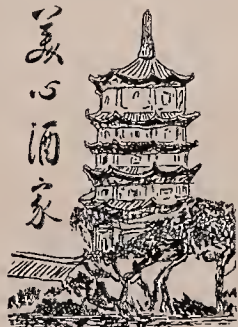 美心酒家